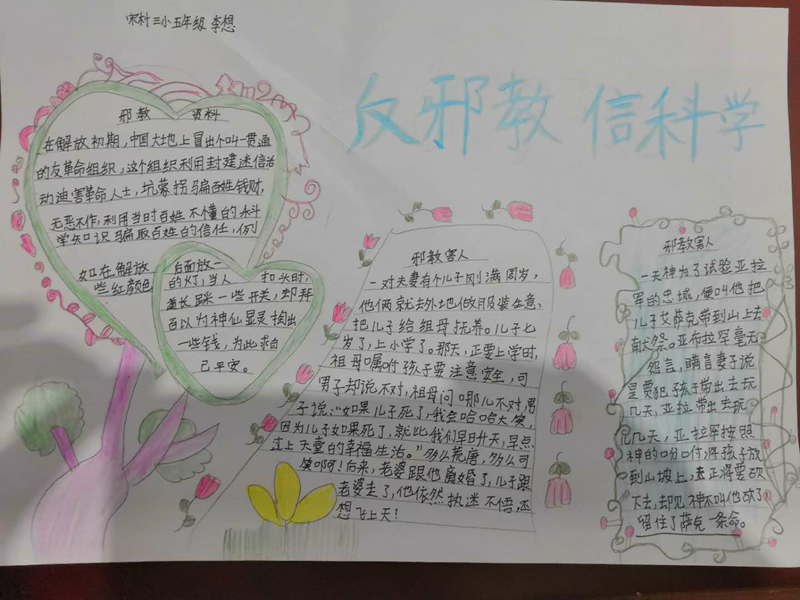 宋村三小五年级 李想
反邪教 信科学
邪教 资料
在解放初期,中国大地上冒出个叫一贯通
的反革命组织,这个组织利用封建迷信活
动迫害革命人士,坑蒙拐骗百姓钱财,
无恶不作,利用当时百姓不懂的科
学知识骗取百姓的信任,例
如在解放
些红颜色
台面放一
的灯,当人 扣头时,
道长踩一些开关,却拜
百以为神仙显灵掏出
一些钱,为此求自
己平安。
邪教害人
一对夫妻有个儿子刚满周岁,
他俩就去外地做服装生意,
把儿子给祖母抚养。儿子七
岁了,上小学了。那天,正要上学时,
祖母嘱咐孩子要注意安全,可
男子却说不对,祖母问哪儿不对,男
子说:"如果儿子死了,我会哈哈大笑,
因为儿子如果死了,就比我们早日升天,早点
过上天堂的幸福生活。"多么荒唐,多么可
笑啊!后来,老婆跟他离婚了,儿子跟
老婆走了,他依然执迷不悟,还
想飞上天!
邪教害人
一天神为了试验亚拉
罕的忠城,便叫他把
儿子艾萨克带到山上去
献祭。亚布拉罕毫无
怨言,瞒着妻子说
是要把孩子带出去玩
几天,亚拉带出去玩
几天,亚拉罕按照
神的吩咐将孩子放
到山坡上,查正将要砍
下去,却见神不叫他砍了,
留住了萨克一条命。